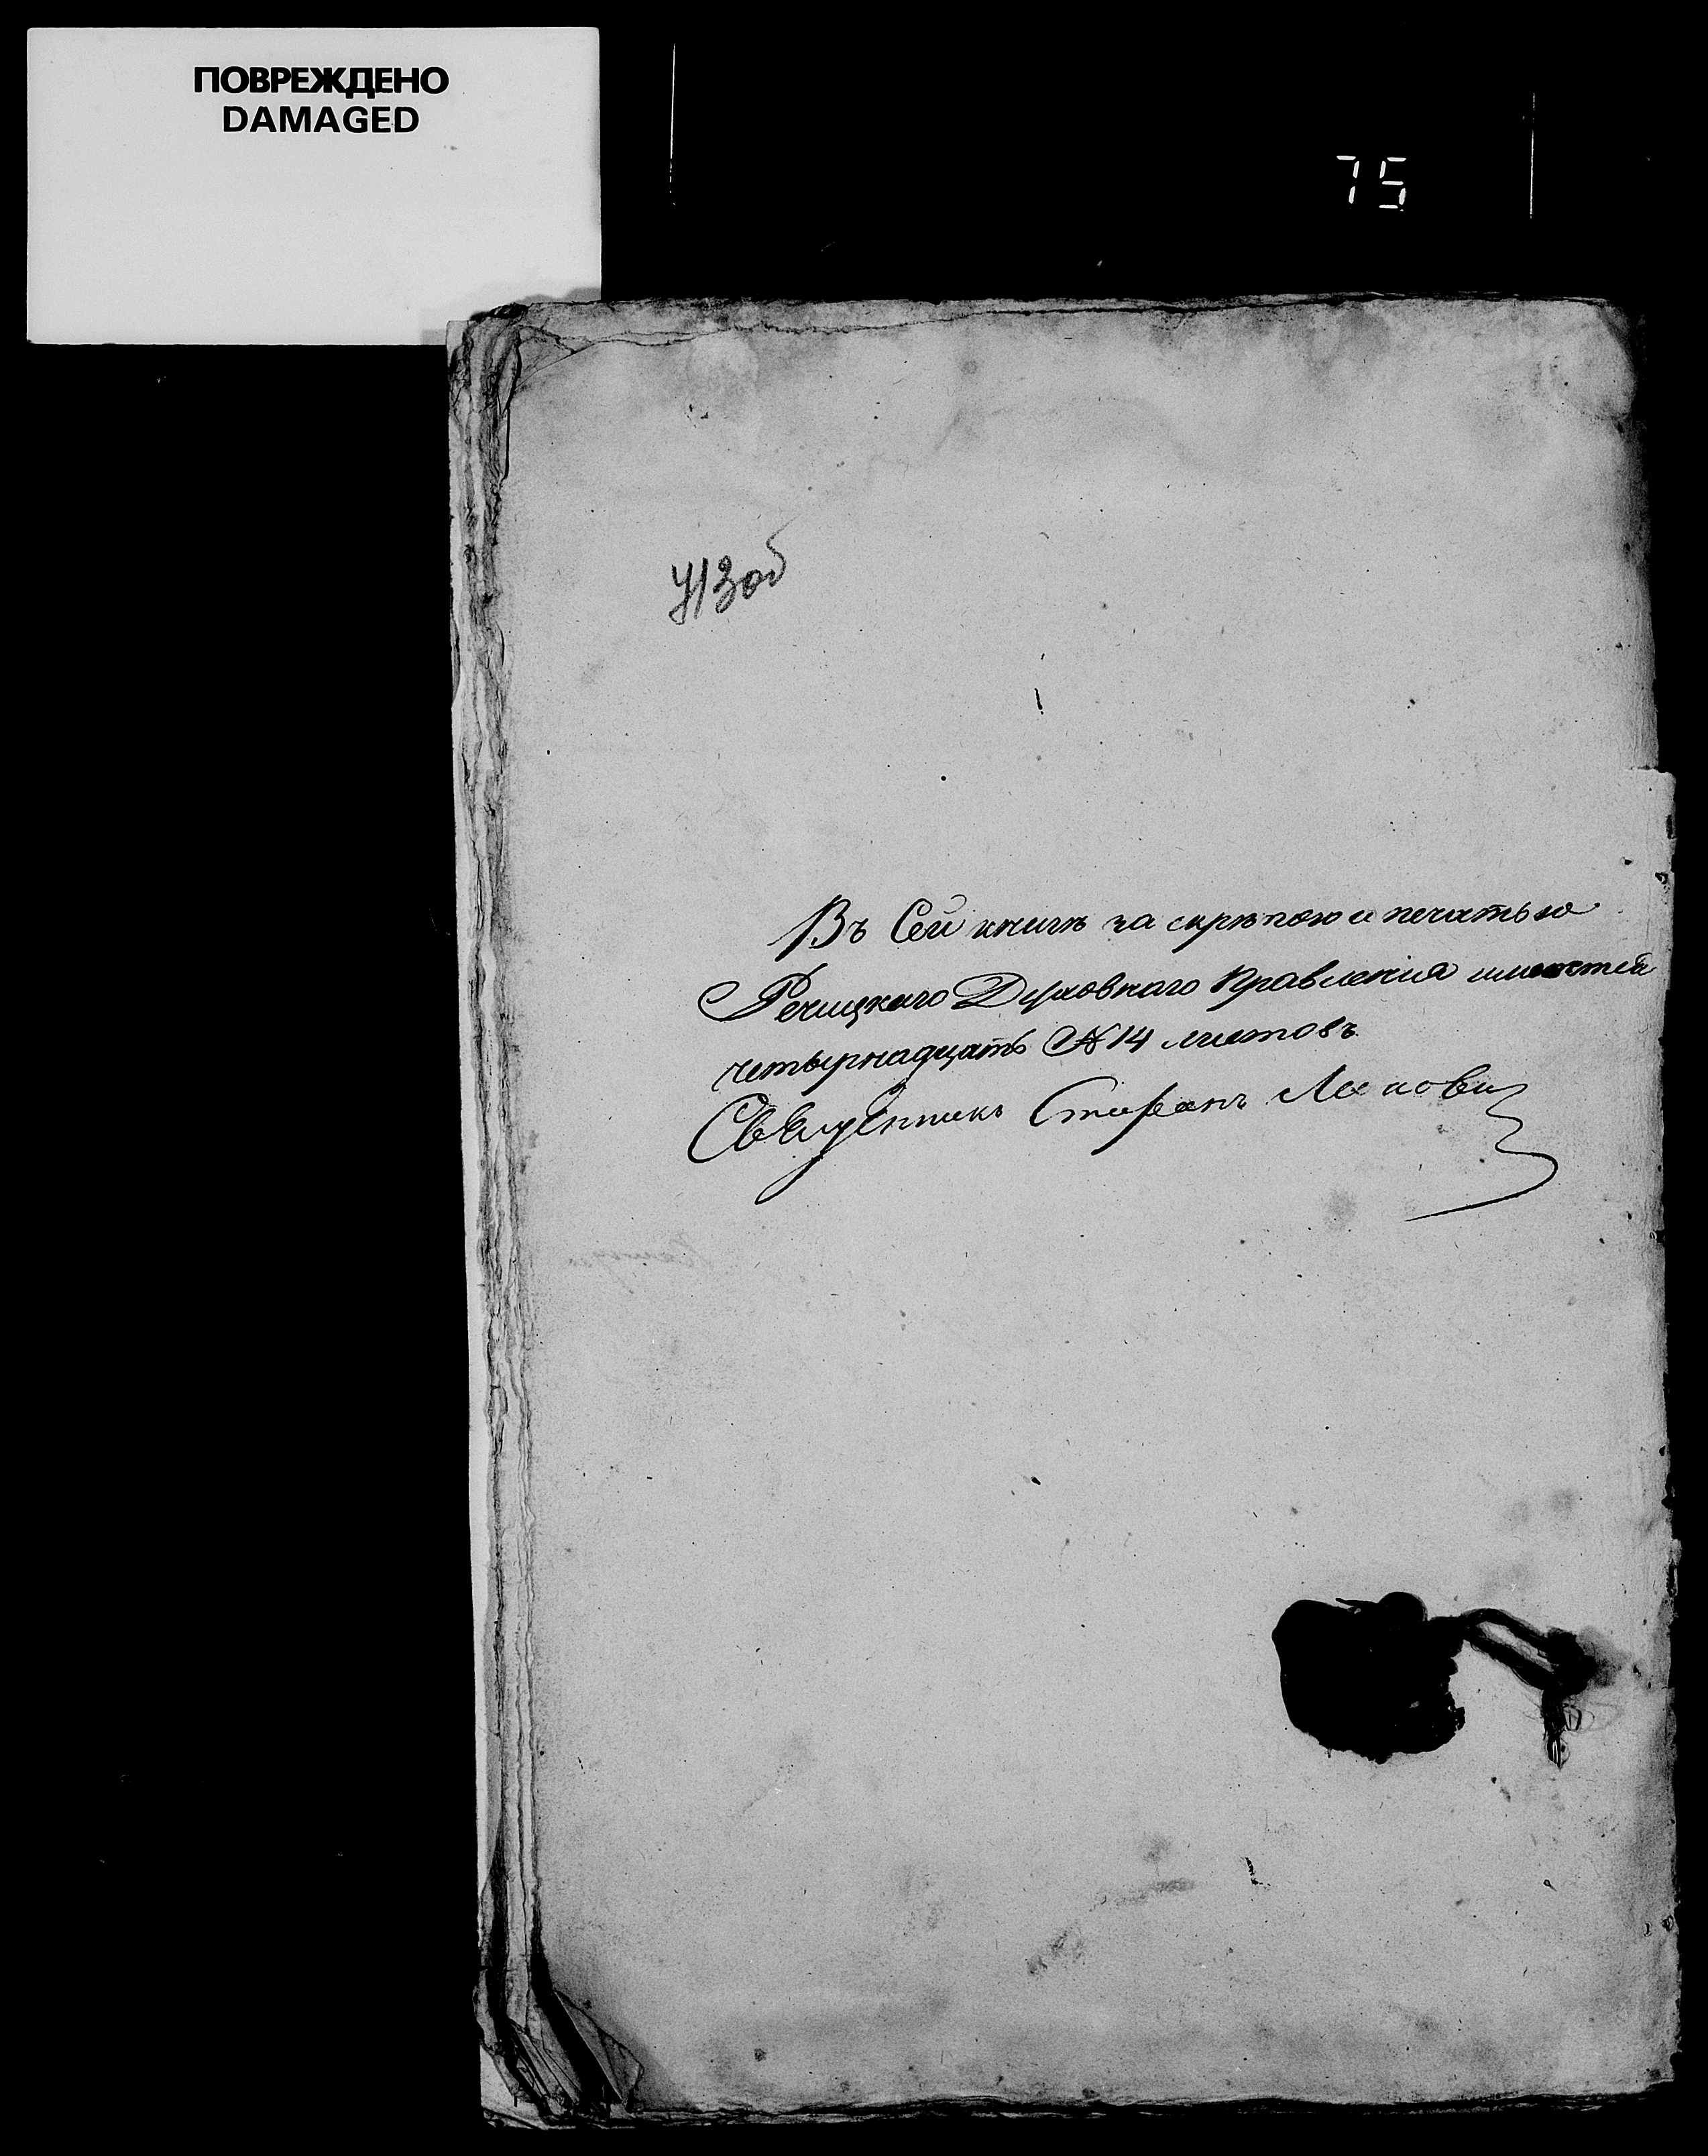 ПОВРЕЖДЕНО
DAMAGED
75
Въ Сей книгѣ за скрѣпою и печатью
Речицкаго Духовнаго Правленія имѣется
четырнадцать № 14 листовъ
Священникъ Стефанъ